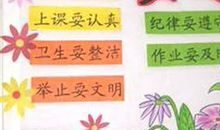 上课要认真
卫生要整洁
举止要文明
纪律要遵
作业要及